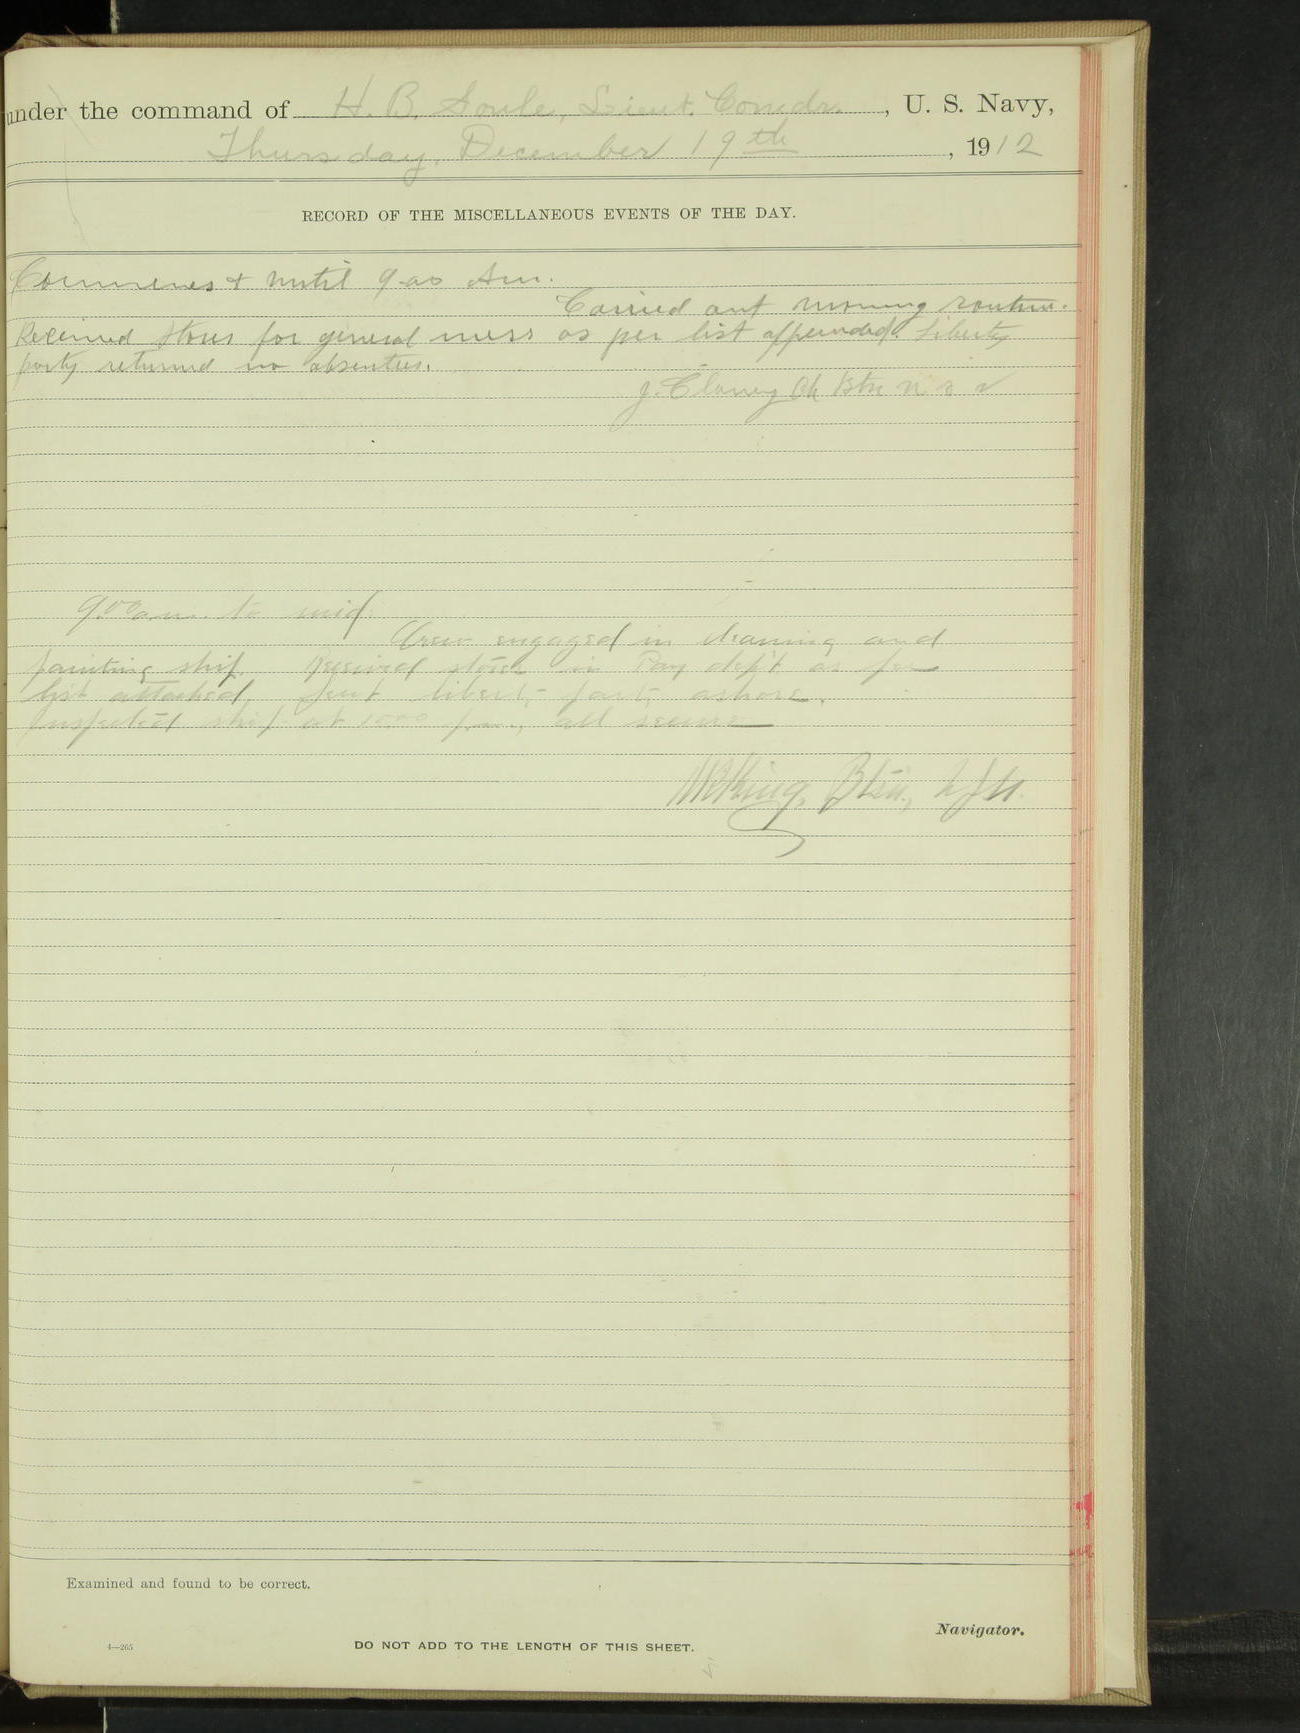 under the command of H. B. Soule, Lieut. Comdr., U. S. Navy,
Thursday, December 19th, 1912
RECORD OF THE MISCELLANEOUS EVENTS OF THE DAY.
Commences & until 9-00 Am.
Carried out morning routine.
Received stores for general mess as per list appended. Liberty
party returned no absentees.
J. Clancy Ch Btsn U S N
9.00 a.m. to mid.
Crew engaged in cleaning and
painting ship. Received stores in Pay dep't as per
list attached. Sent liberty party ashore.
Inspected ship at 10:00 p.m., all secure
King, Btsn., U.S.N.
Examined and found to be correct.
Navigator.
4—265
DO NOT ADD TO THE LENGTH OF THIS SHEET.